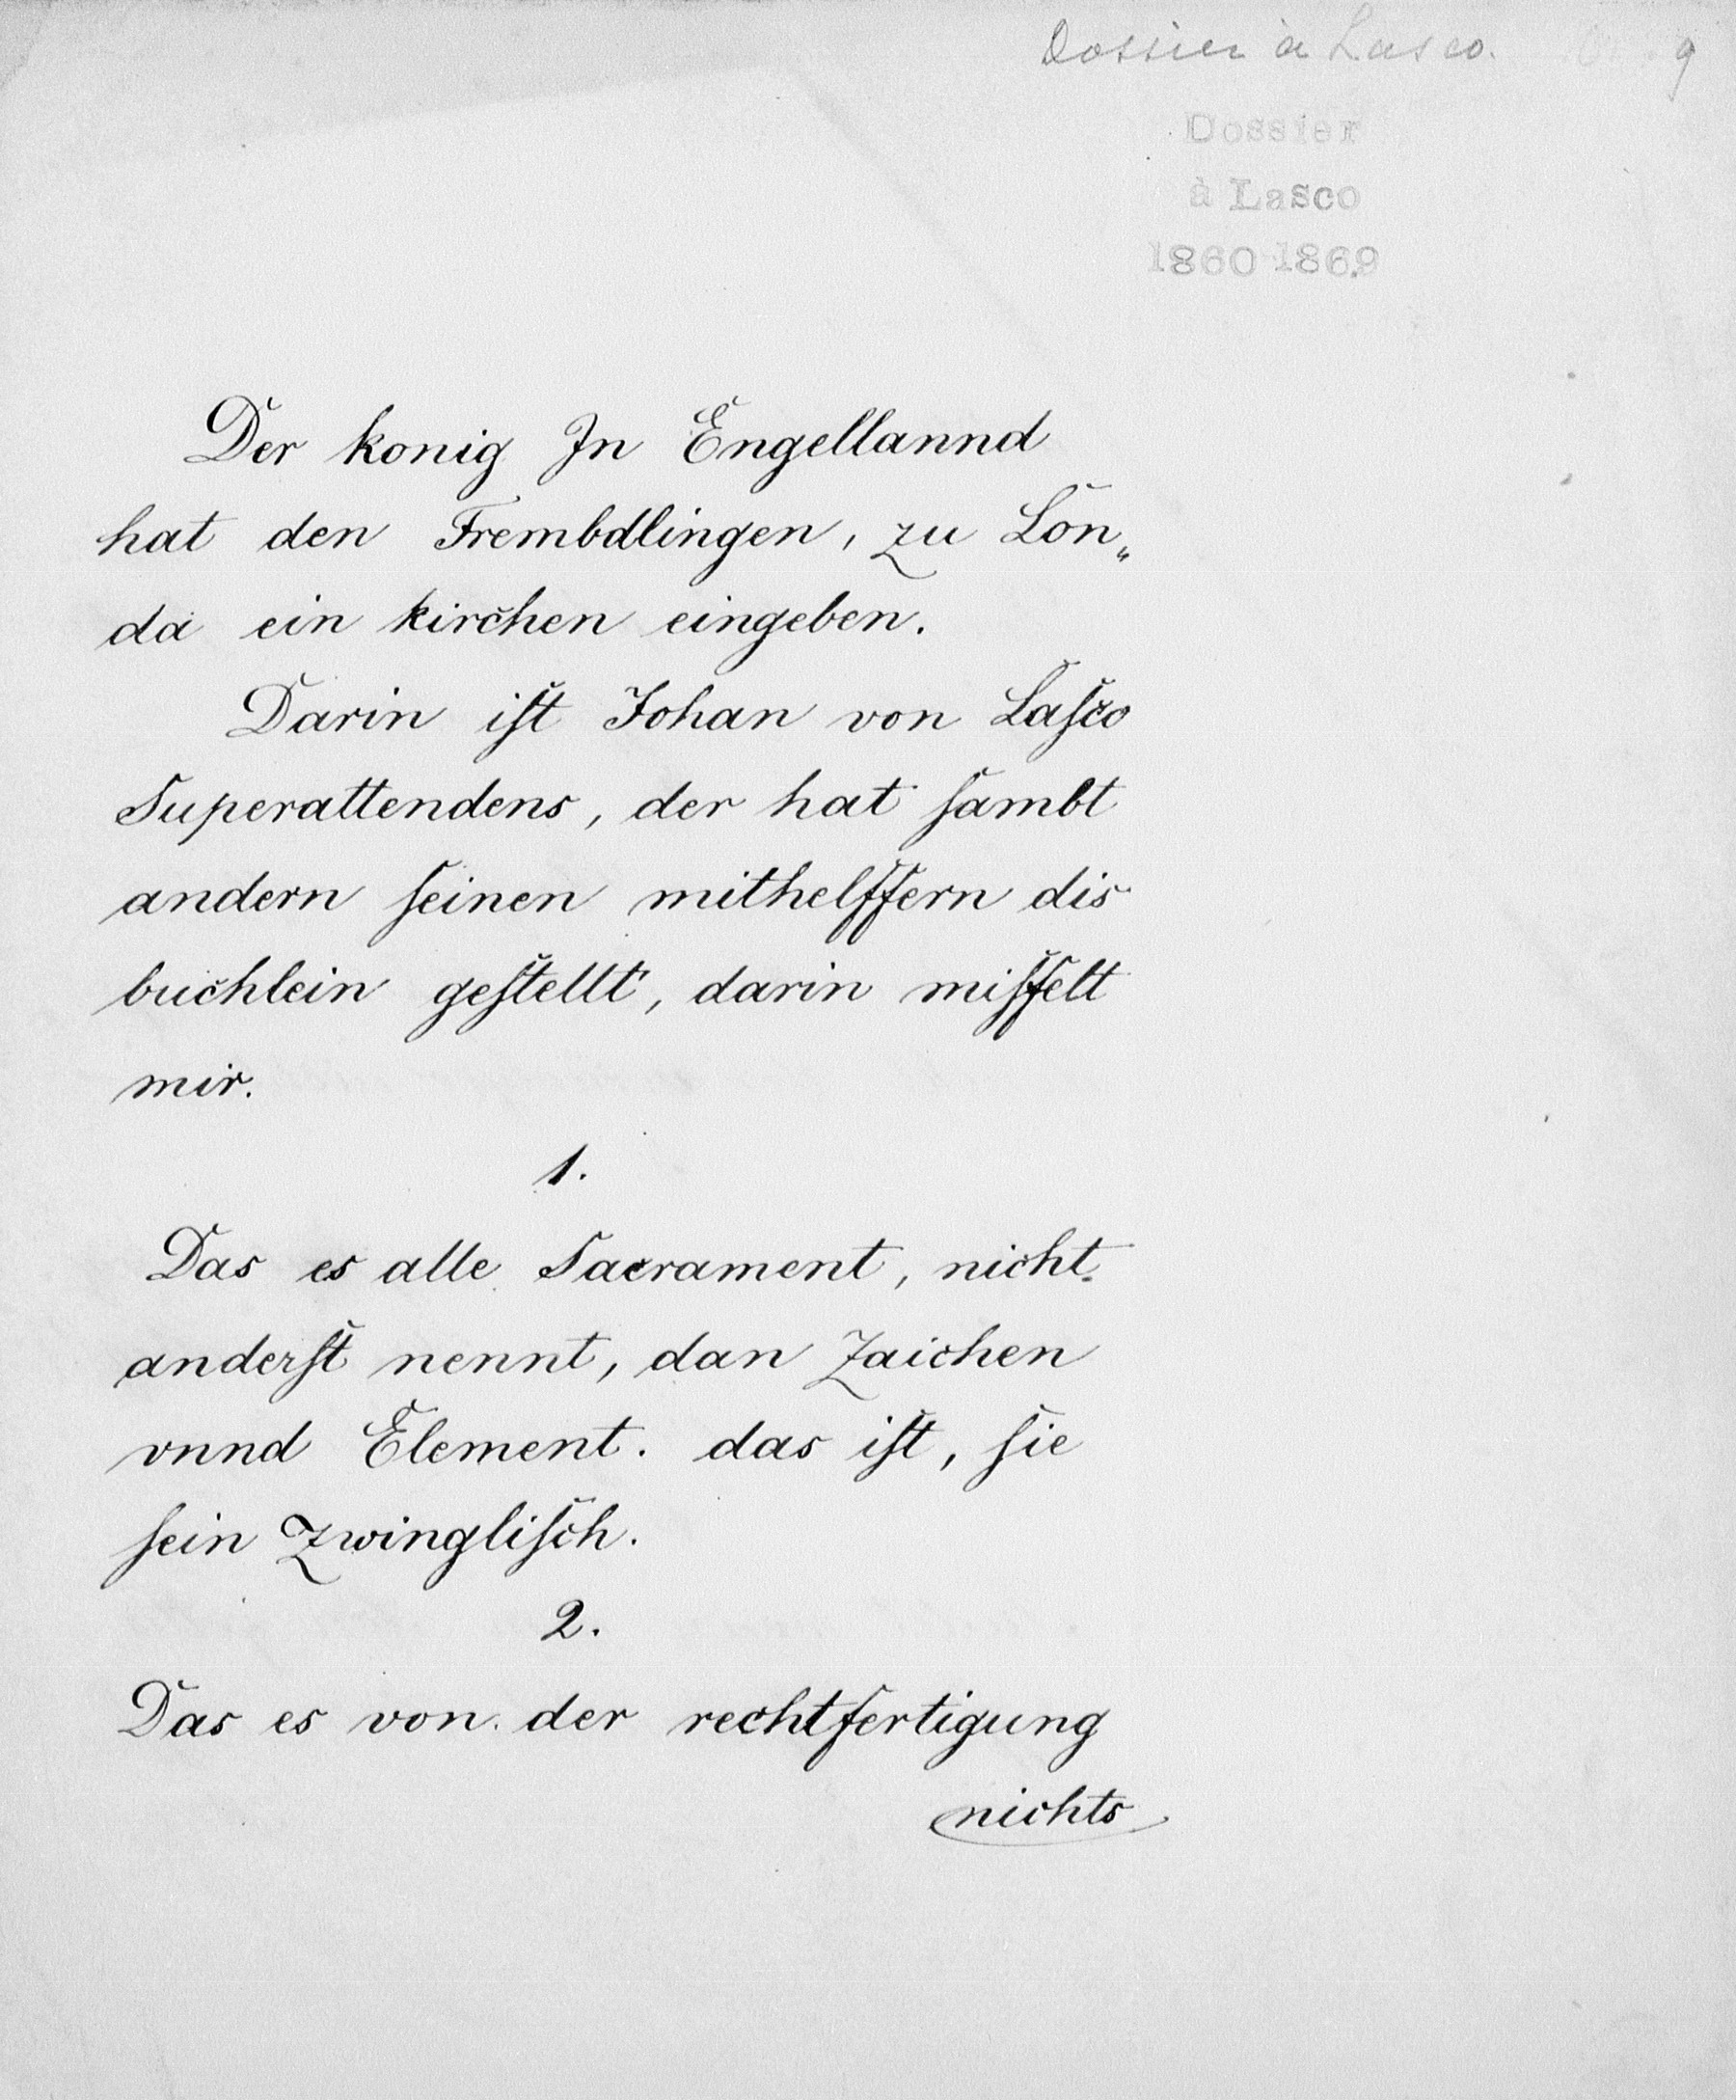 Dossier à Lasco. 9
Dossier
à Lasco
1860 1869
Der konig In Engellannd
hat den Frembdlingen, zu Lon„
da ein kirchen eingeben.
Darin iſt Johan von Laſco
Superattendens, der hat ſambt
andern ſeinen mithelffern dis
buchlein geſtellt, darin miſfelt
mir.
1.
Das es alle Sacrament, nicht
anderſt nennt, dan Zaichen
vnnd Element. das iſt, ſie
ſein Zwingliſch.
2.
Das es von der rechtfertigung
nichts